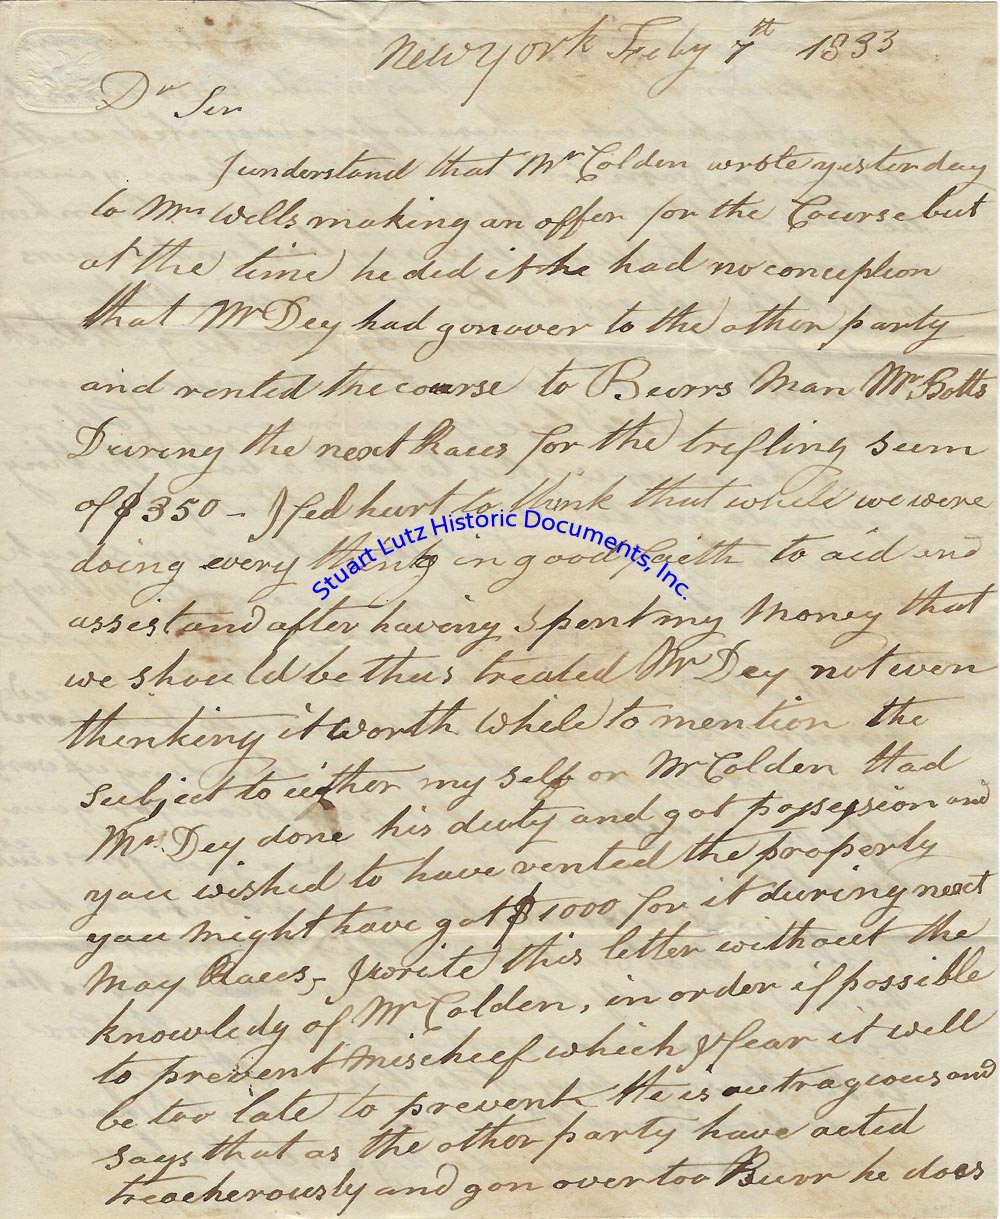 New York Feby 7th 1833
Dr Ser
I understand that Mr Colden wrote yesterday
to Mrs Wells making an offer for the Course but
at the time he ded it he had no conception
that Mr Dey had gon over to the other party
and rented the course to Burrs Man Mr Botts
During the next Races for the trifling sum
of $350 – I feel hurt to think that while we were
doing every thing in good faith to aid and
assist and after having Spent my Money that
we should be thus treated Mr Dey not even
thinking it worth while to mention the
Subject to either my self or Mr Colden Had
Mr Dey done his duty and got possession and
you wished to have rented the property
you Might have got $1000 for it during next
May Races, I write this letter without the
knowledg of Mr Colden, in order if possible
to prevent Mischief which I fear it will
be too late to prevent He is outragious and
says that as the other party have acted
treacherously and gon over too Burr he does
Stuart Lutz Historic Documents, Inc.